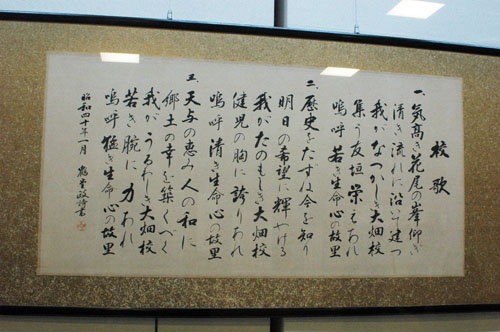 校歌
一、気高き花尾の峯仰ぎ
清き流れに沿いて建つ
我がなつかしき大畑校
集う友垣栄えあれ
嗚呼若き生命心の故里
二、歴史をたずね今を知り
明日の希望に輝やける
我がたのもしき大畑校
健児の胸に誇りあれ
嗚呼清き生命心の故里
三、天与の恵み人の和に
郷土の幸を築くべく
我がうるわしき大畑校
若き腕に力あれ
嗚呼猛き生命心の故里
昭和四十年一月